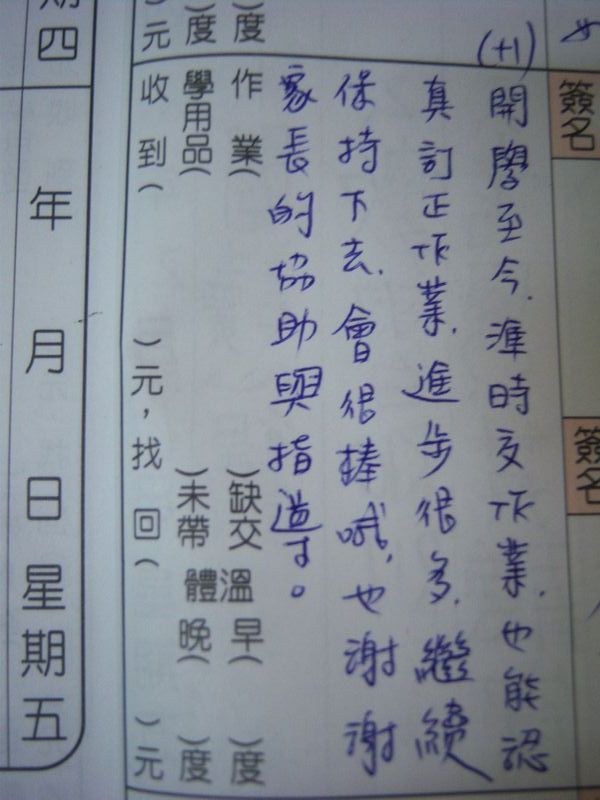 簽名
簽名
(+1)
開學至今,準時交作業,也能認
真訂正作業,進步很多,繼續
保持下去,會很棒哦,也謝謝
家長的協助與指導。
)度
作業( )缺交 溫 早( )度
)度
學用品( )未帶 體 晚( )度
)元
收到( )元,找回( )元
期四
年 月 日星期五